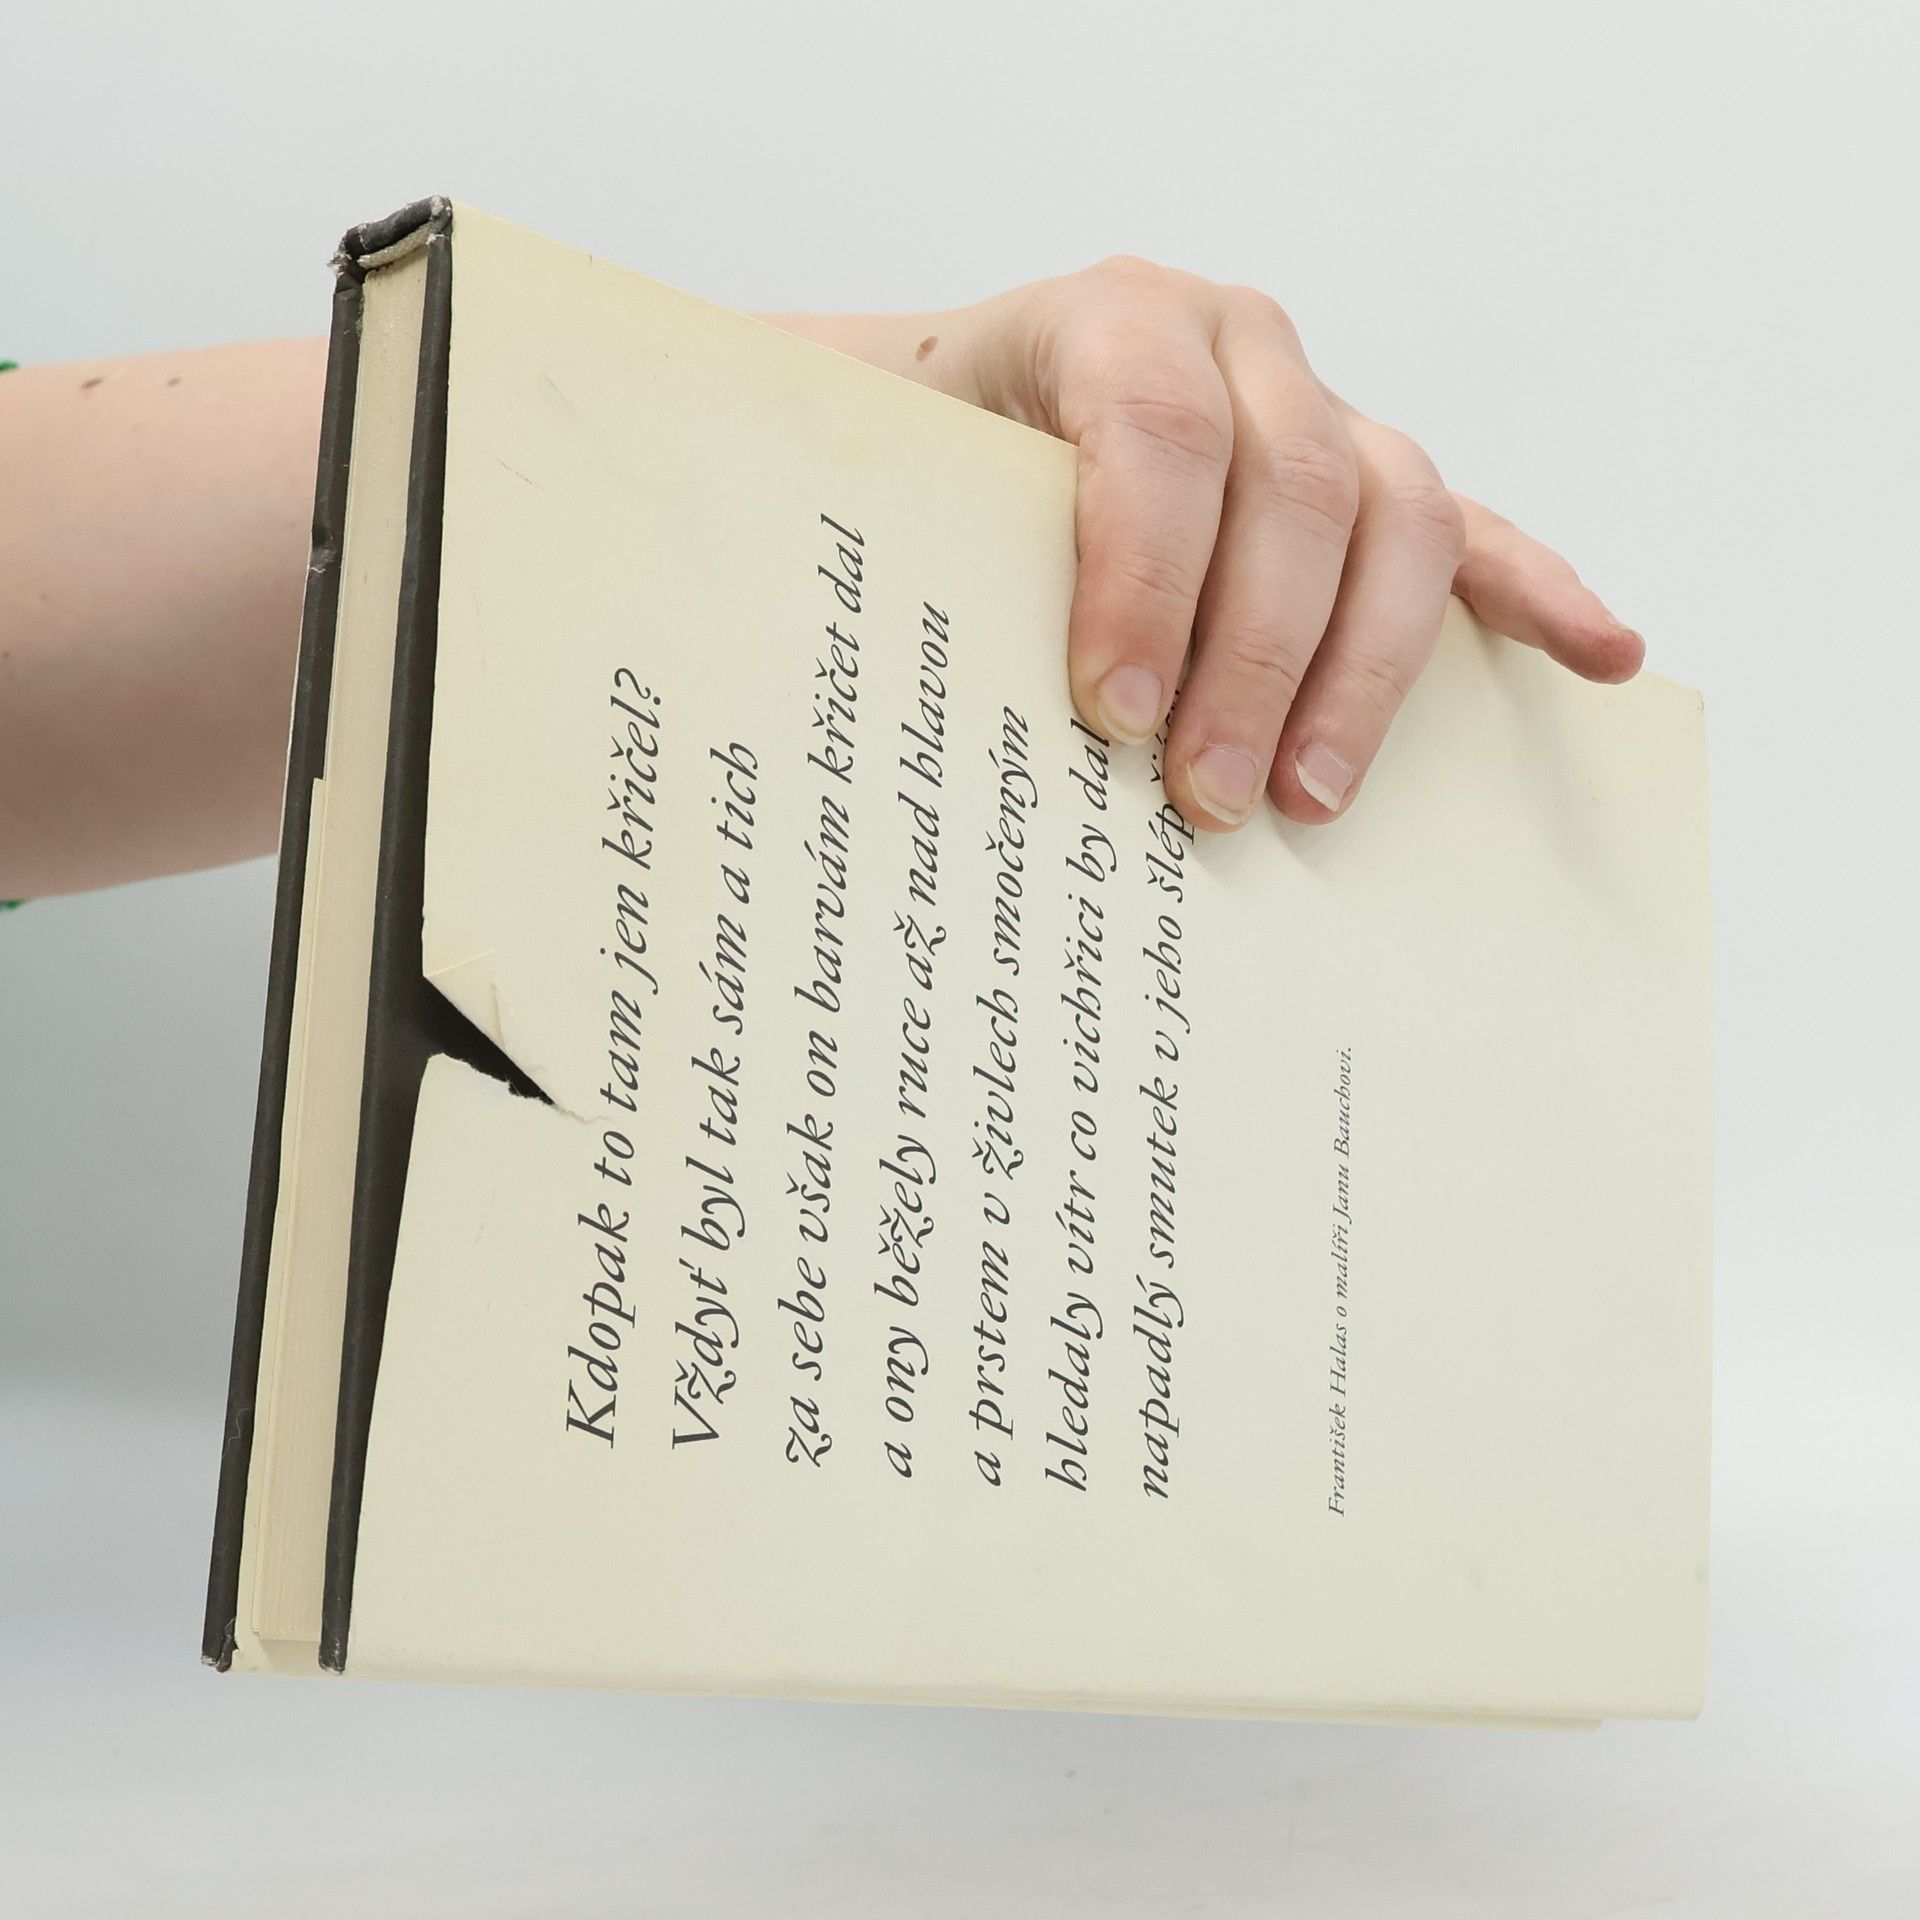 Kdopak to tam jen křičel?
Vždyť byl tak sám a tich
za sebe však on barvám křičet dal
a ony běžely ruce až nad hlavou
a prstem v živlech smočeným
hledaly vítr co vichřici by dal
napadlý smutek v jeho
František Halas o malíři Janu Bauchovi.